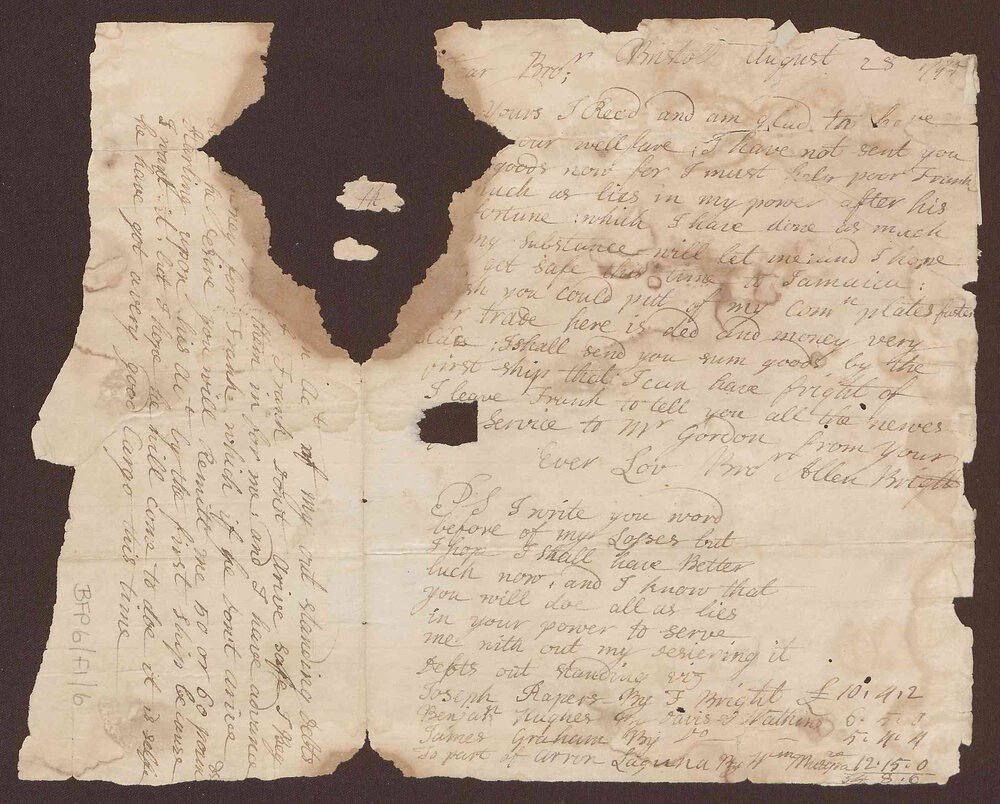 Bristoll August 28
ear Bro<sup>r</sup>,
yours I Recd and am glad to have
our wellfare ; I have not sent you
goods now for I must help poor Frank
uch as lies in my power after his
fortune : which I have done as much
my substance will let me : and I hope
get safe this time to Jamaica :
sh you could put of my Com<sup>n</sup> plates faster
r trade here is ded and money very
I shall send you sum goods by the
first ship that I can have fright of
I leave Frank to tell you all the newes
Service to M<sup>r</sup> Gordon from your
Ever Lov Bro<sup>r</sup> Allen Bright
PS I write you word
before of my Losses but
I hope I shall have Better
luck now, and I know that
you will doe all as lies
in your power to serve
me with out my desiering it
Debts out standing viz
Joseph Rapers By F Bright £ 10 : 4 : 2
Benja<sup>n</sup> Hughes By Davis & Watkins 6 : 5 :
James Graham By D<sup>o</sup> 5 : 4 : 4
To part of Arron Laguna By W<sup>m</sup> 12 : 15 : 0
34 : 8 : 6
my out standing debts
Frank dont arive safe I pray
tham in for me, and I have advance
mney for Frank which if he dont arive
desire you will Remitt me 50 or 60 pound
starling upon his ac by the first ship because
I want it, but I hope he will come to doe it is selfe
he have got a very good Cargo this time
BFP6/F1/6